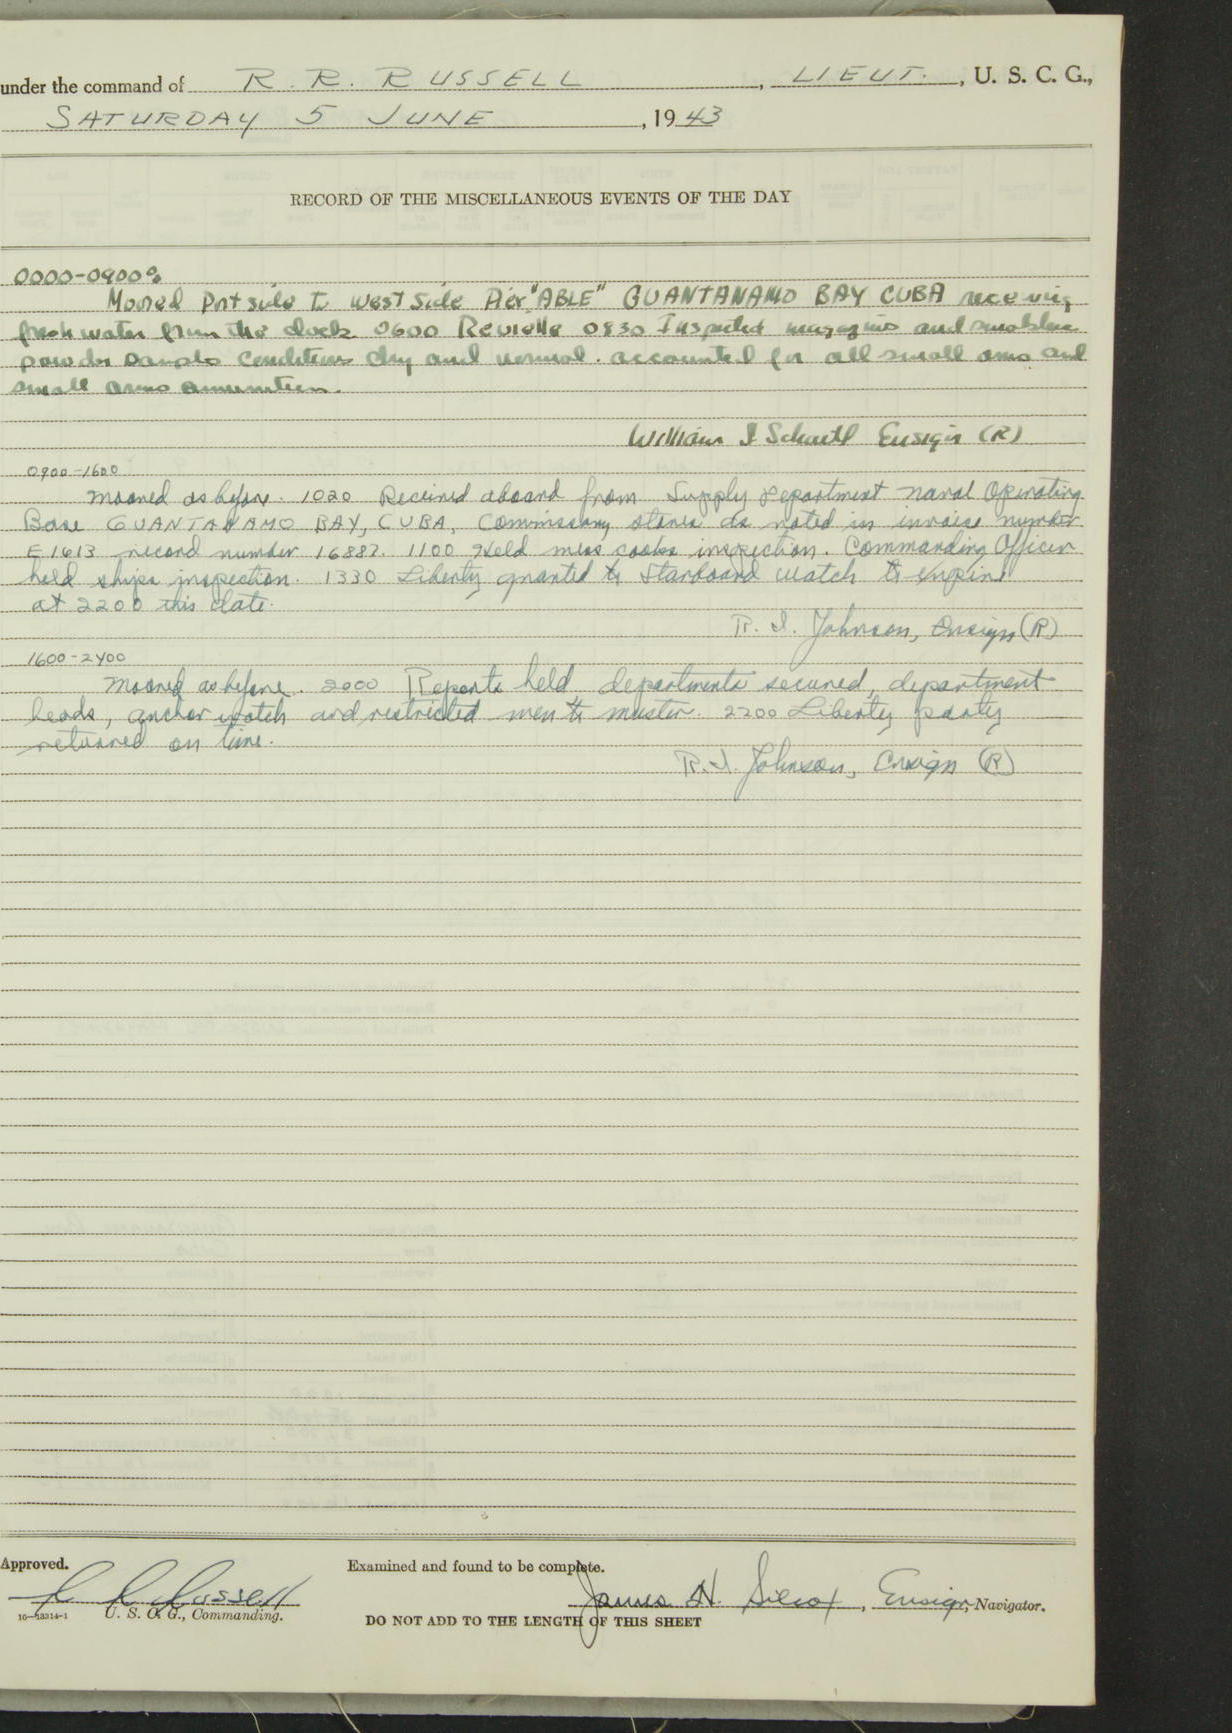 under the command of R. R. RUSSELL, LIEUT., U. S. C. G.,
SATURDAY 5 JUNE, 1943
RECORD OF THE MISCELLANEOUS EVENTS OF THE DAY
0000-0900
Moored Port side to west side Pier "ABLE" GUANTANAMO BAY CUBA receiving
fresh water from the dock 0600 Reveille 0830 Inspected magazines and smokeless
powder samples conditions dry and normal. accounted for all small arms and
small arms ammunition.
William J Ensign (R)
0900-1600
Moored as before. 1020 Received aboard from Supply Department Naval Operating
Base GUANTANAMO BAY, CUBA, Commissary stores as noted in invoice number
E1613 record number 16882. 1100 Held mess cooks inspection. Commanding Officer
held ships inspection. 1330 Liberty granted to Starboard watch to expire
at 2200 this date.
R. I. Johnson, Ensign (R)
1600-2400
Moored as before. 2000 Reports held, departments secured, department
heads, anchor watch and restricted men to muster. 2200 Liberty party
returned on time.
R. I. Johnson, Ensign (R)
Approved. Examined and found to be complete.
R R Russell James H. Silcox, Ensign, Navigator.
16-13314-1 U. S. C. G., Commanding.
DO NOT ADD TO THE LENGTH OF THIS SHEET